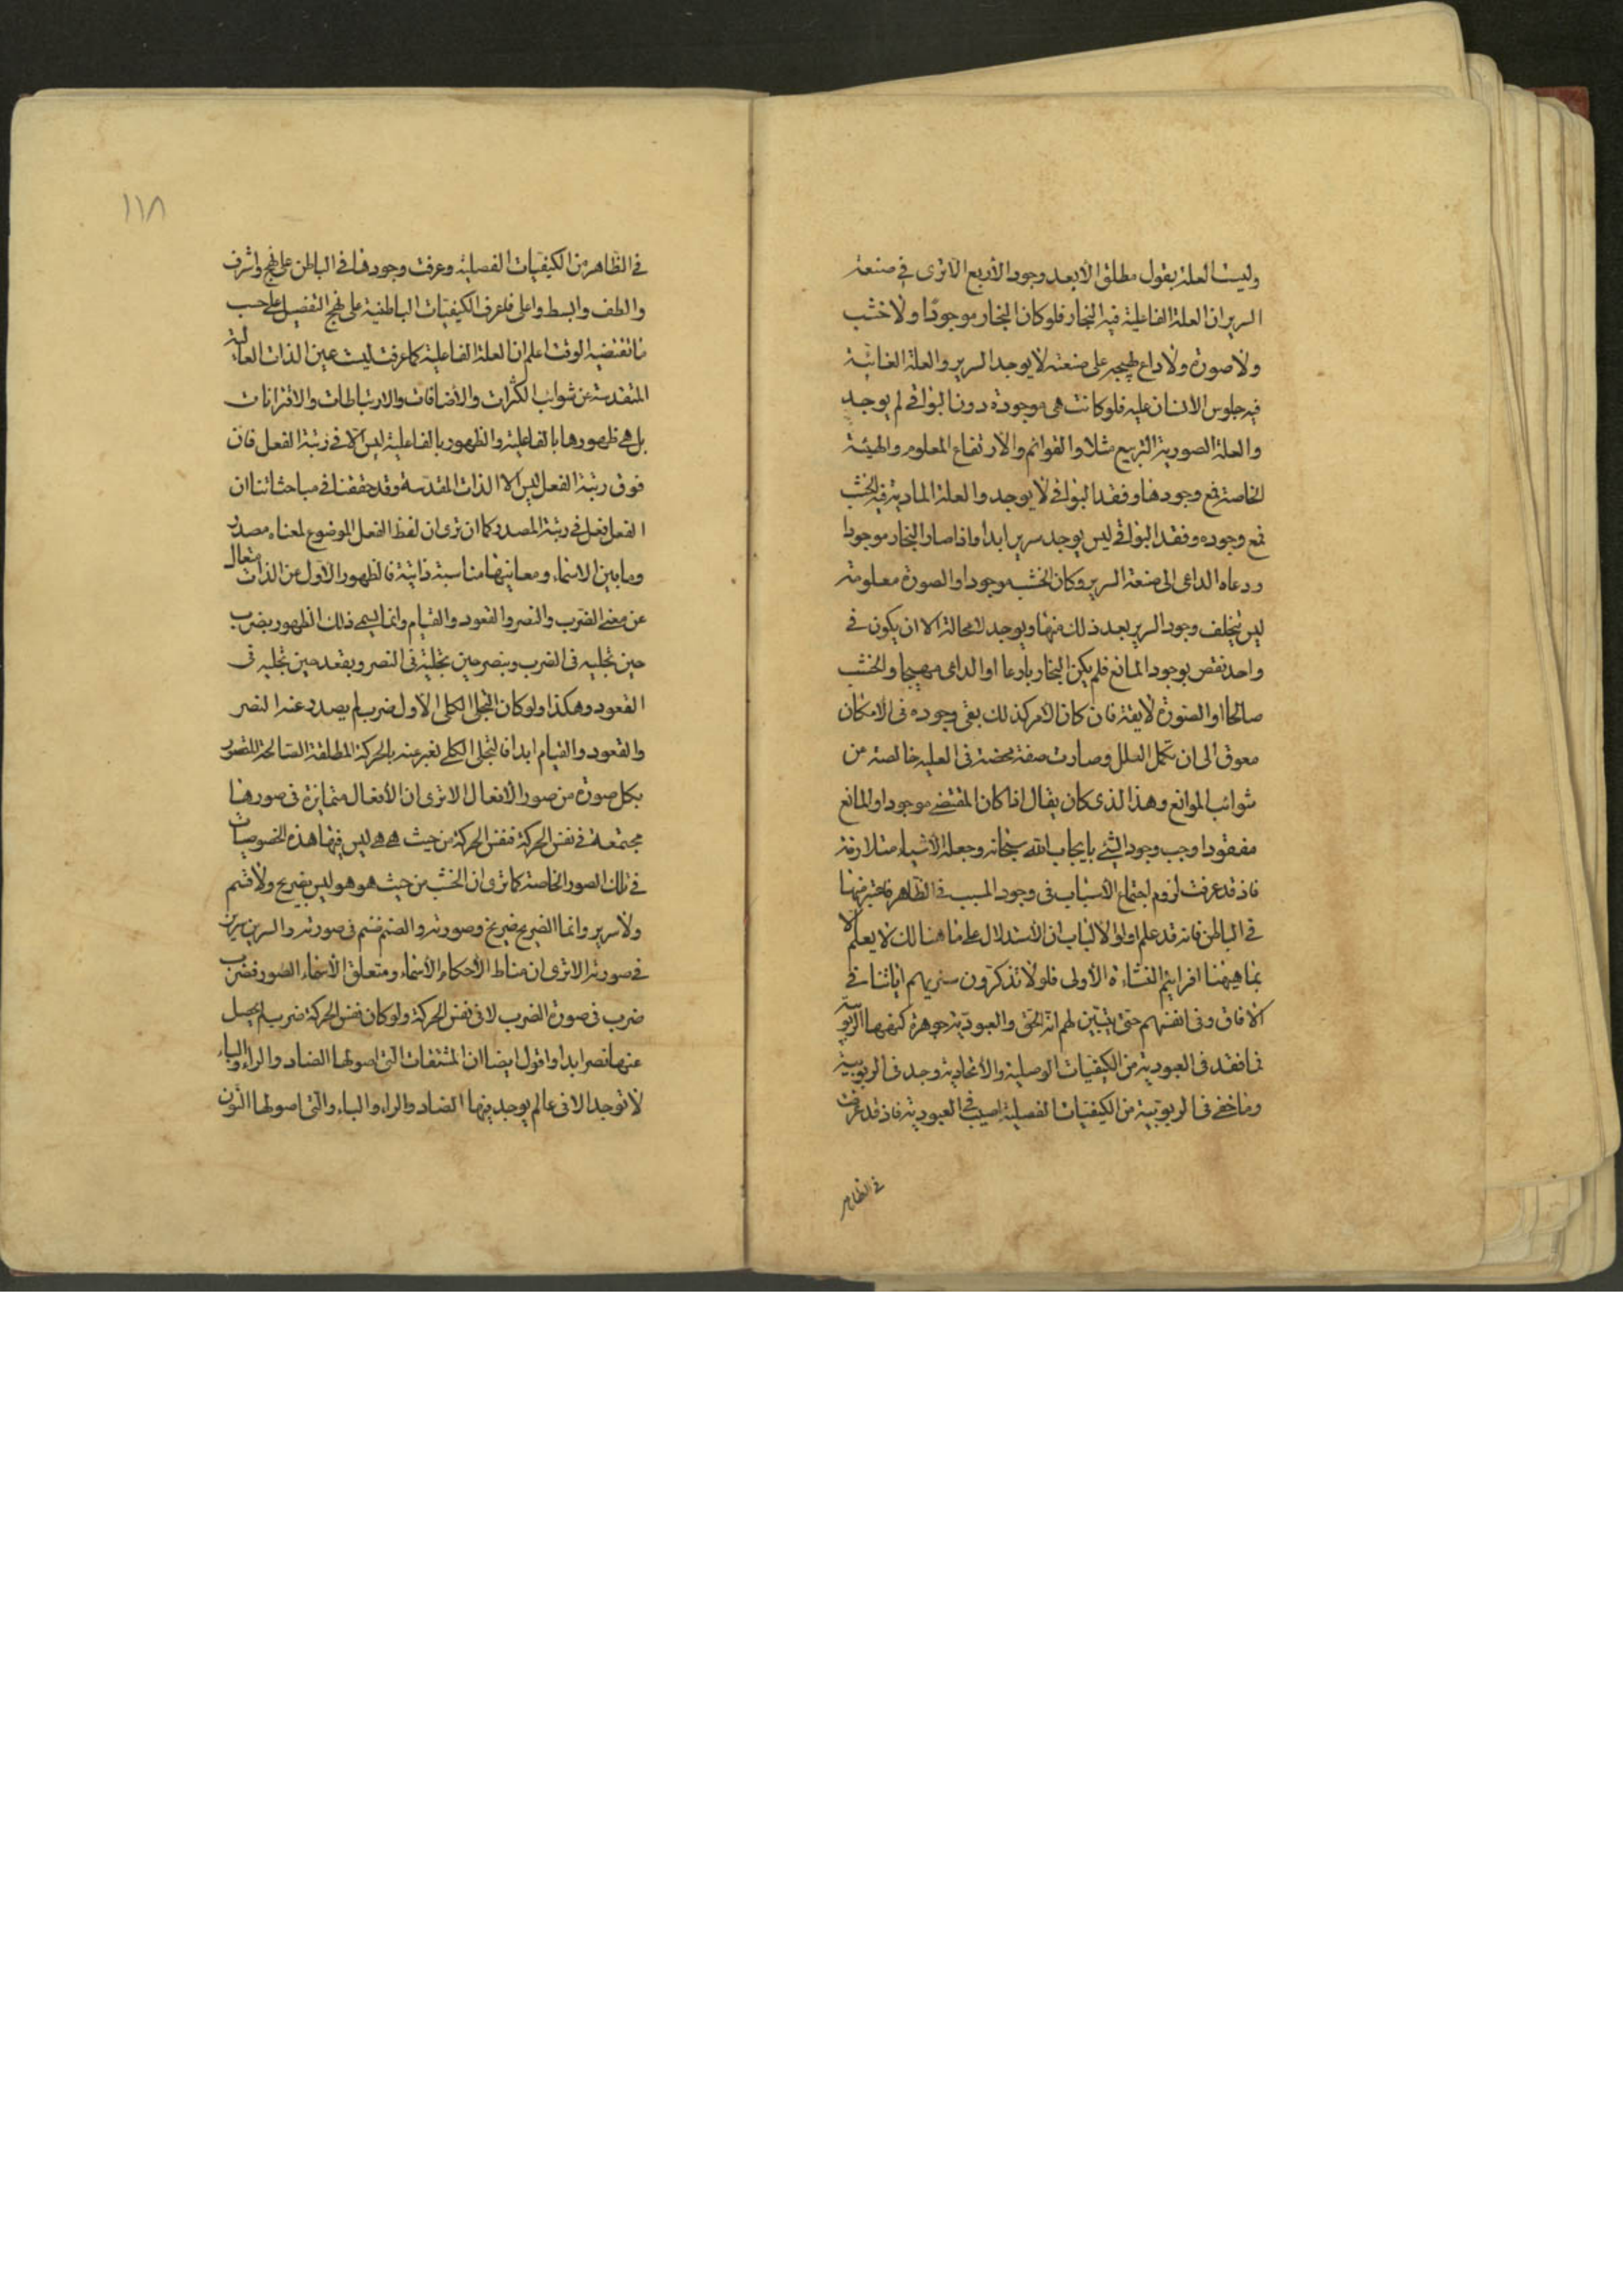 وليست العلة بقول مطلق الا بعد وجود الأربع الا ترى في صنعة
السرير ان العلة الفاعلية فيه النجار فلو كان النجار موجودًا ولا خشب
ولا صورة ولا داع يهيجه على صنعته لا يوجد السرير والعلة الغائية
فيه جلوس الانسان عليه فلو كانت هى موجودة دون البواقي لم يوجد
والعلة الصورية التربيع مثلا والقوائم والارتفاع المعلوم والهيئة
الخاصة فمع وجودها وفقد البواقي لا يوجد والعلة المادية فيه الخشب
فمع وجوده وفقد البواقي ليس يوجد سرير ابدا واذا صار النجار موجودا
ودعاه الداعى الى صنعة السرير وكان الخشب موجودا والصورة معلومة
ليس يتخلف وجود السرير بعد ذلك منها ويوجد لا محالة الا ان يكون في
واحد نقص بوجود المانع فلم يكن النجار بارعا او الداعى مهيجا والخشب
صالحا او الصورة لايقة فان كان الأمر كذلك بقى وجوده فى الامكان
معوق الى ان تكمل العلل وصارت صفة محضة فى العلية خالصة من
شوائب الموانع وهذا الذى كان يقال اذا كان المقتضي موجودا والمانع
مفقودا وجب وجود الشئ بايجاب الله سبحانه وجعله الأشياء متلازمة
فاذ قد عرفت لزوم اجتماع الأسباب فى وجود المسبب في الظاهر فاعتبر منها
في الباطن فانه قد علم اولوا الألباب ان الأستدلال على ما هنالك لا يعلم الا
بما هيهنا افرايتم النشاءة الأولى فلولا تذكرون سنريهم اياتنا في
الافاق وفى انفسهم حتى يتبين لهم انه الحق والعبودية جوهرة كنهها الربوبية
فما فقد فى العبودية من الكيفيات الوصلية والأتحادية وجد فى الربوبية
وما خفي فى الربوبية من الكيفيات الفصلية اصيب في العبودية فاذ قد عرفت
في الظاهر
١١٨
في الظاهر من الكيفيات الفصلية وعرفت وجودها في الباطن على نهج واشرف
والطف وابسط واعلى فلنعرف الكيفيات الباطنية على نهج التفصيل على حسب
ما تقتضيه الوقت اعلم ان العلة الفاعلية كما عرفت ليست عين الذات العالية
المتقدسة عن شوائب الكثرات والأضافات والارتباطات والاقترانات
بل هي ظهورها بالفاعلية والظهور بالفاعلية ليس الا في رتبة الفعل فان
فوق رتبة الفعل ليس الا الذات المقدسة وقد حققنا في مباحثاتنا ان
الفعل فعل في رتبة المصدر كما ان ترى ان لفظ الفعل الموضوع لمعناه مصدر
وما بين الاسماء ومعانيها مناسبة ذاتية فالظهور الأول عن الذات متعال
عن معنى الضرب والنصر والقعود والقيام وانما يسمى ذلك الظهور بضرب
حين تجليه فى الضرب وبنصر حين تجليه فى النصر وبقعد حين تجليه فى
القعود وهكذا ولو كان التجلى الكلى الاول ضرب لم يصدر عنه النصر
والقعود والقيام ابدا فالتجلى الكلي نعبر عنه بالحركة المطلقة الصالحة للتصور
بكل صورة من صور الأفعال الا ترى ان الأفعال متمايزة فى صورها
مجتمعة في نفس الحركة فنفس الحركة من حيث هي هي ليس فيها هذه الخصوصيات
في تلك الصور الخاصة كما ترى ان الخشب من حيث هو هو ليس بضريح ولا صنم
ولا سرير وانما الضريح ضريح وصورته والصنم صنم فى صورته والسرير سرير
في صورته الا ترى ان مناط الأحكام الأسماء ومتعلق الأسماء الصور فضرب
ضرب فى صورة الضرب لا فى نفس الحركة ولو كان نفس الحركة ضرب لم يحصل
عنها نصر ابدا واقول ايضا ان المشتقات التى اصولها الضاد والراء والباء
لا توجد الا فى عالم يوجد فيها الضاد والراء والباء والتى اصولها النون